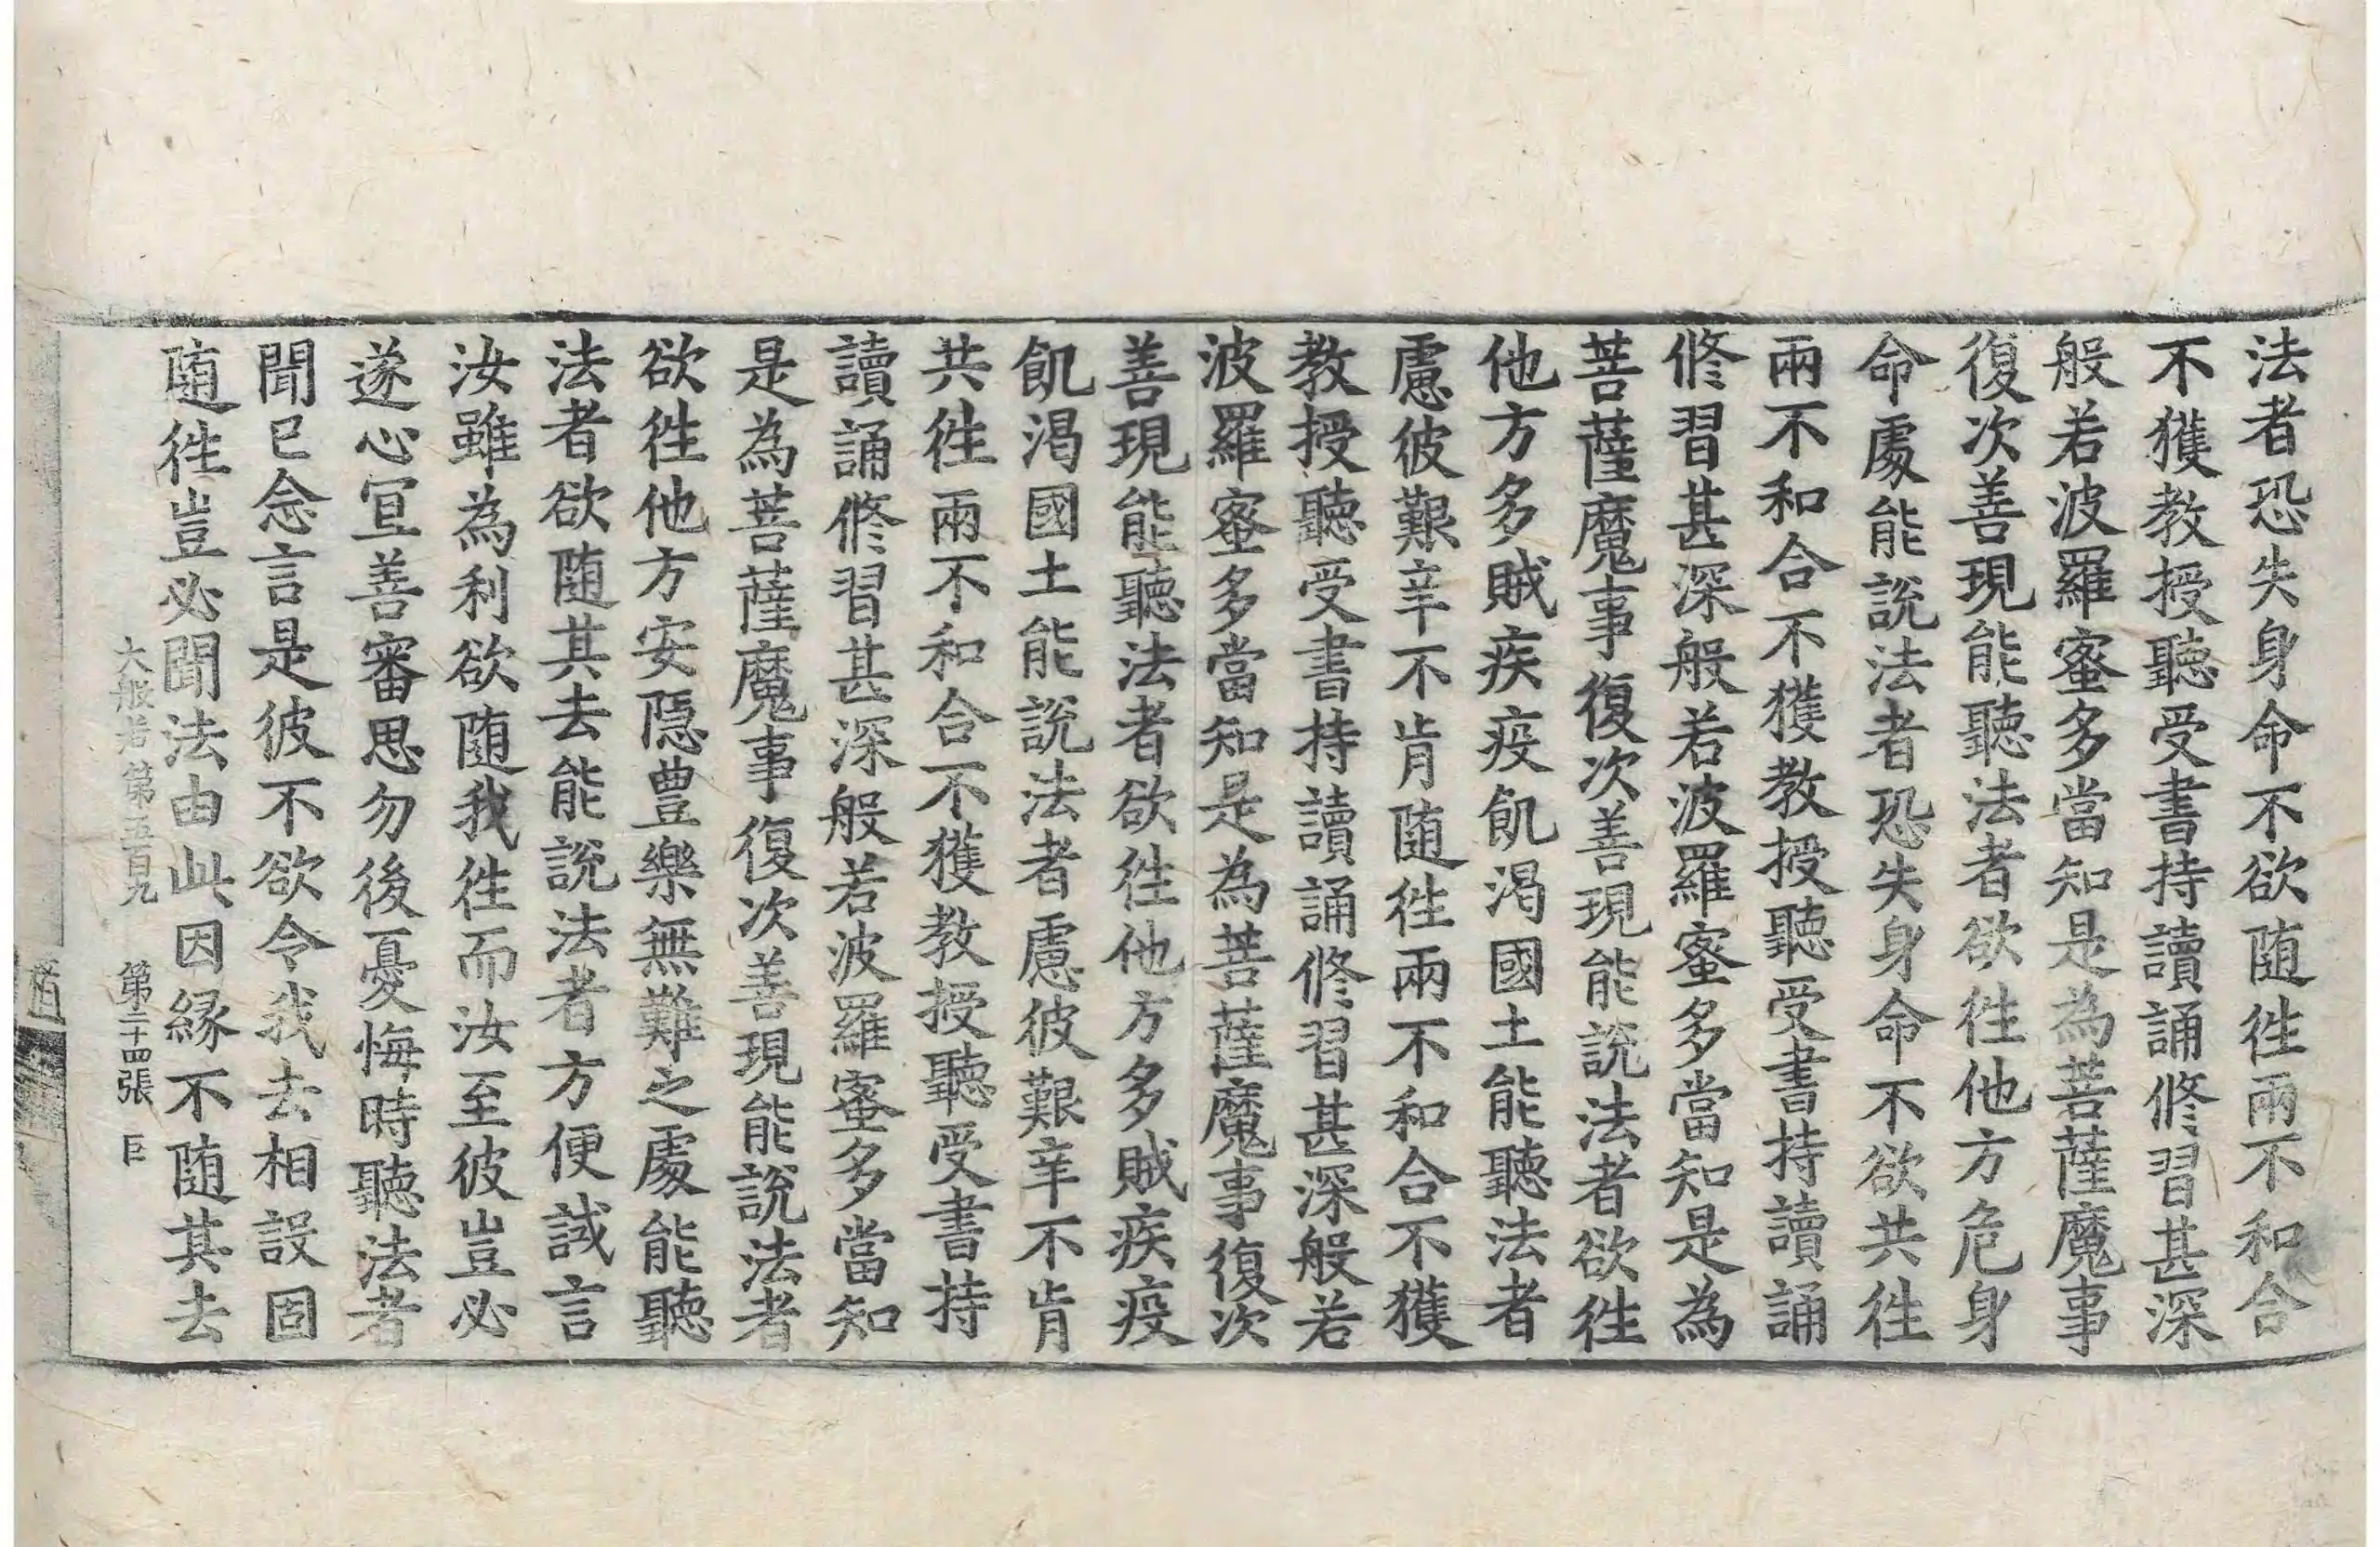 法者恐失身命不欲随徃兩不和合
不獲教授聽受書持讀誦修習甚深
般若波羅蜜多當知是為菩薩魔事
復次善現能聽法者欲徃他方危身
命處能說法者恐失身命不欲共徃
兩不和合不獲教授聽受書持讀誦
修習甚深般若波羅蜜多當知是為
菩薩魔事復次善現能說法者欲徃
他方多賊疾疫飢渴國土能聽法者
慮彼艱辛不肯随徃兩不和合不獲
教授聽受書持讀誦修習甚深般若
波羅蜜多當知是為菩薩魔事復次
善現能聽法者欲徃他方多賊疾疫
飢渴國土能說法者慮彼艱辛不肯
共徃兩不和合不獲教授聽受書持
讀誦修習甚深般若波羅蜜多當知
是為菩薩魔事復次善現能說法者
欲徃他方安隱豊樂無難之處能聽
法者欲随其去能說法者方便誡言
汝雖為利欲随我徃而汝至彼豈必
遂心宜善審思勿後憂悔時聽法者
聞已念言是彼不欲令我去相設固
随徃豈必聞法由此因縁不随其去
大般若第五百九 第二十四張 巨